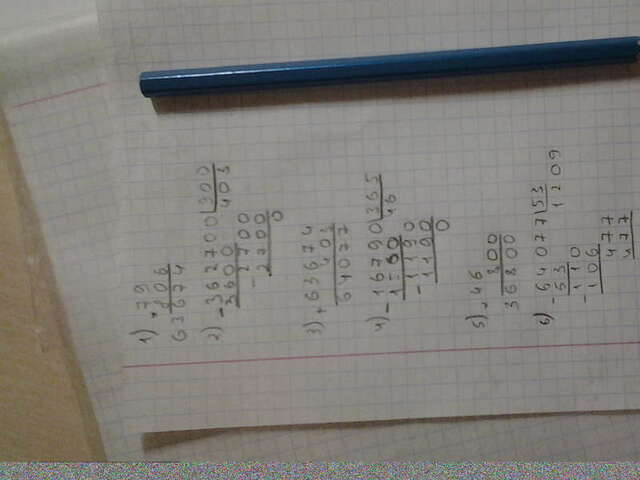 1) × 79
806
63674
2) - 362700 | 900
3600 403
- 2700
2700
0
3) + 63674
403
64077
4) - 16790 | 365
- 1190
1190
0
5) × 46
800
36800
6) - 64077 | 53
53 1209
- 110
106
477
477